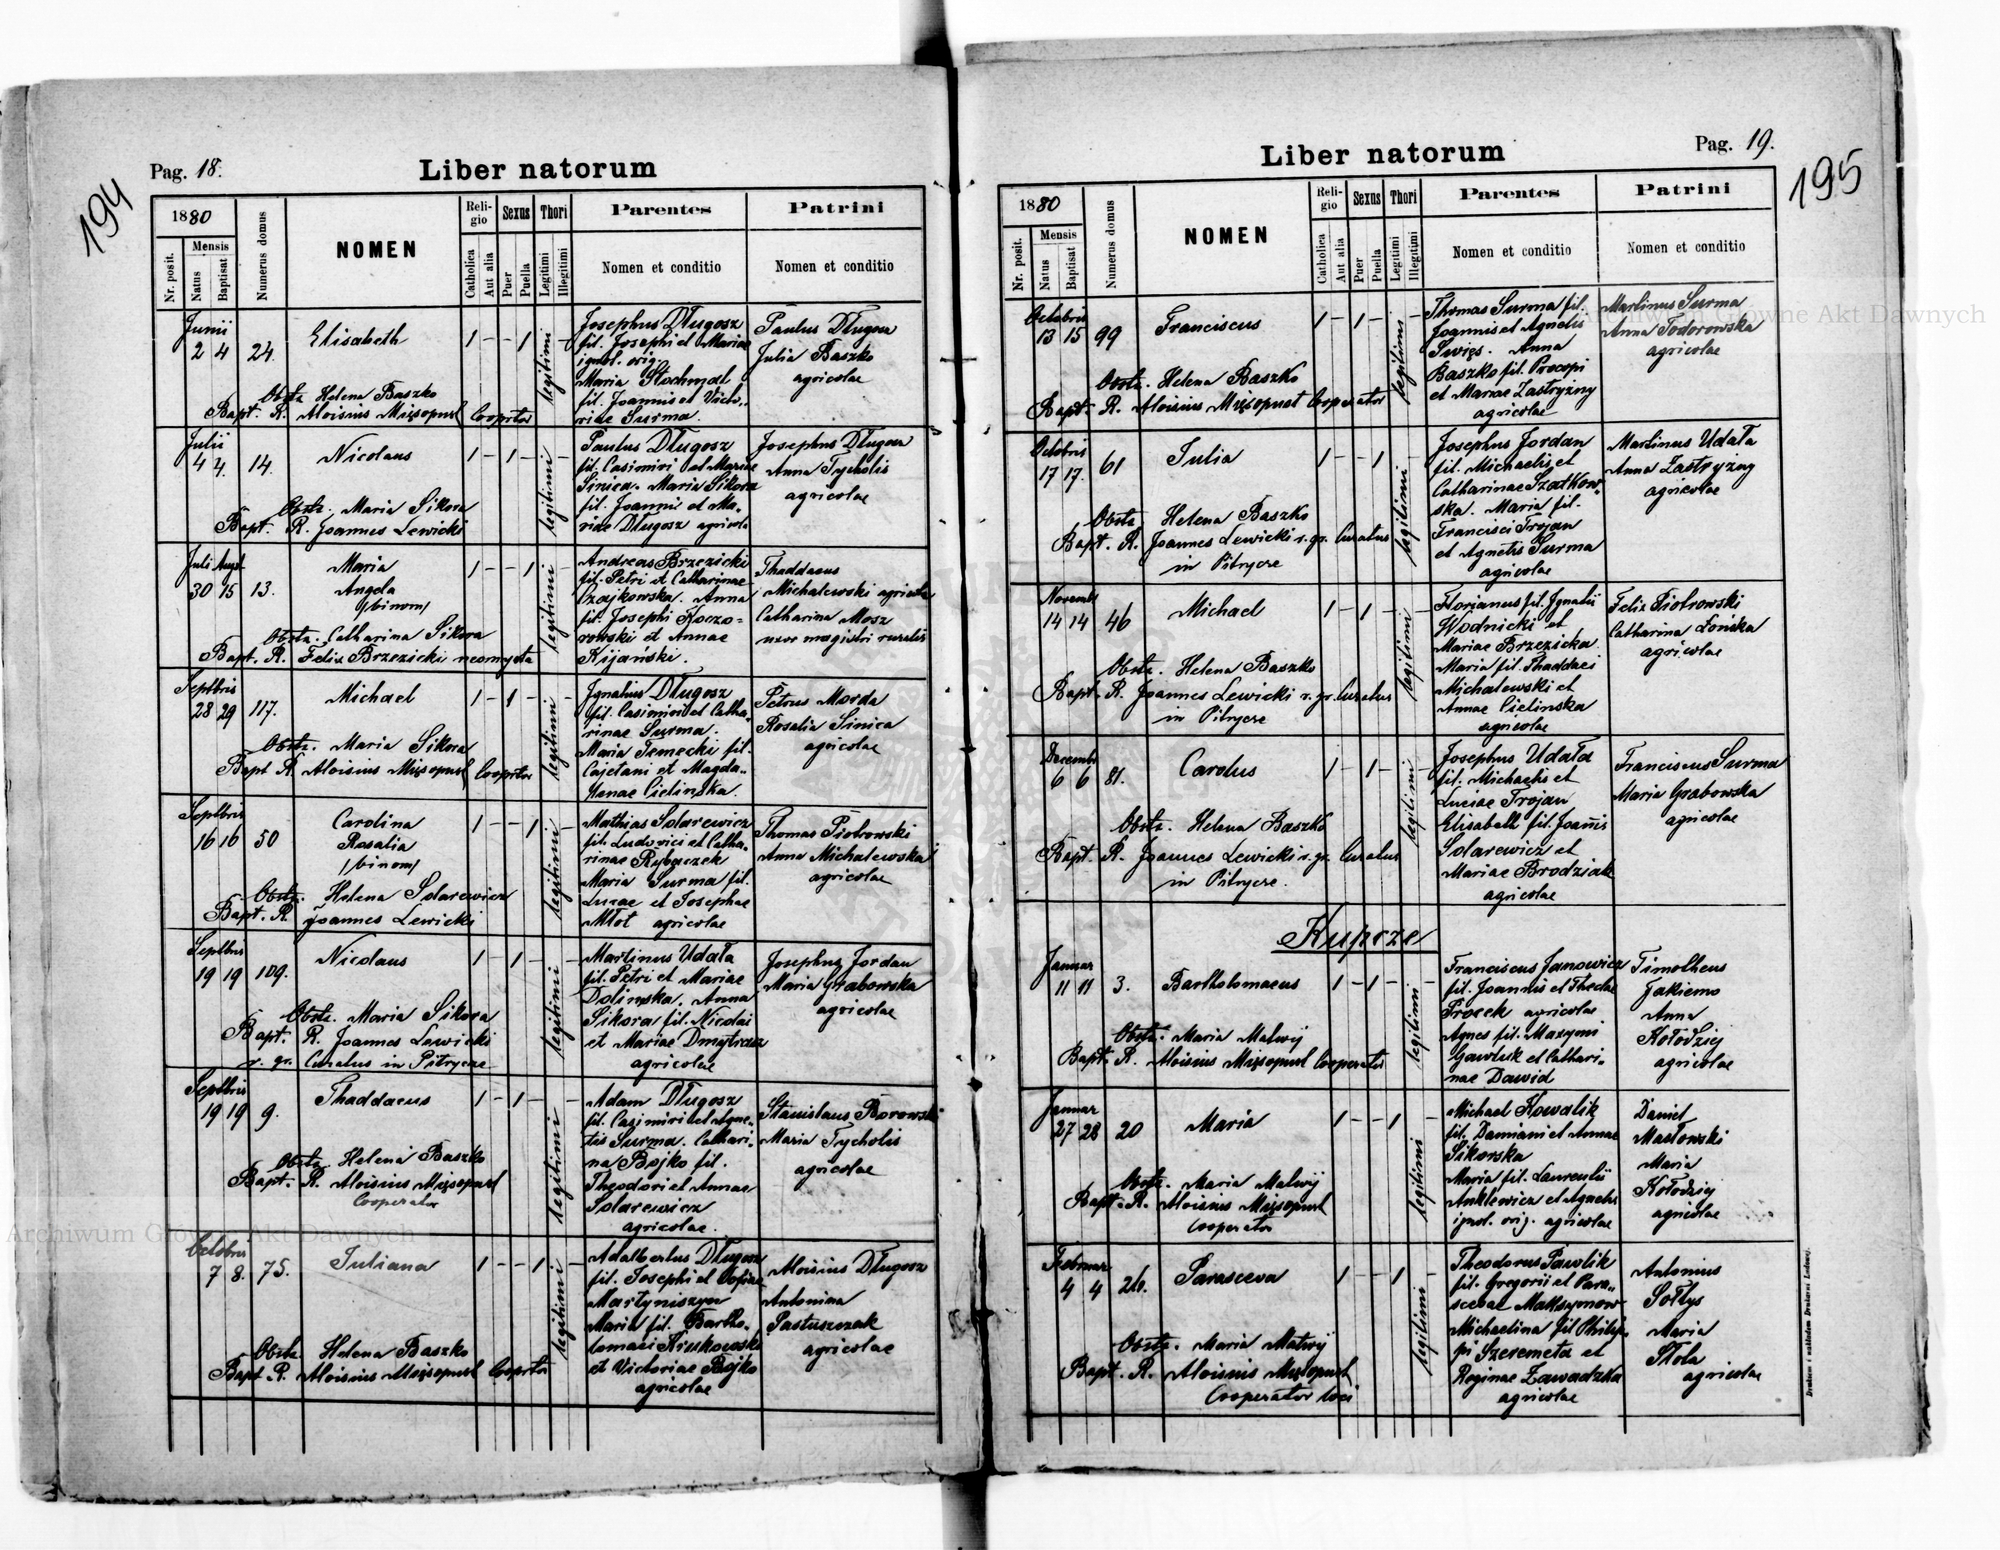 194
Pag. 18.
Liber natorum
1880
Mensis
Nr. posit.
Natus
Baptisat
Numerus domus
NOMEN
Religio
Catholica
Aut alia
Sexus
Puer
Puella
Thori
Legitimi
Illegitimi
Parentes
Nomen et conditio
Patrini
Nomen et conditio
Junii
2 4 24.
Elisabeth
1 - - 1 legitimi -
Obstz Helena Baszko
Bapt. R. Aloisius Mięsopust Cooprtor
Josephus Długosz
fil. Josephi et Mariae
ignot. orig.
Maria Stochmal
fil. Joannis et Victo-
riae Surma.
Paulus Długosz
Julia Baszko
agricolae
Julii
4 4. 14.
Nicolaus
1 - 1 - legitimi -
Obstz. Maria Sikora
Bapt. R. Joannes Lewicki
Paulus Długosz
fil. Casimiri et Mariae
Sinica. Maria Sikora
fil. Joannis et Ma-
riae Długosz agricolae
Josephus Długosz
Anna Tycholis
agricolae
Juli Augt
30 15 13.
Maria
Angela
/binom/
1 - - 1 legitimi -
Obstz. Catharina Sikora
Bapt. R. Felix Brzezicki neomysta
Andreas Brzezicki
fil. Petri et Catharinae
Czajkowska. Anna
fil. Josephi Koczo-
rowski et Annae
Kijański.
Thaddaeus
Michalewski agricola
Catharina Mosz
uxor magistri ruralis
Septbris
28 29 117.
Michael
1 - 1 - legitimi -
Obstz. Maria Sikora
Bapt R. Aloisius Mięsopust Cooprtor
Ignatius Długosz
fil. Casimiri et Catha-
rinae Surma.
Maria Temecki fil.
Cajetani et Magda-
lenae Cielinska.
Petrus Morda
Rosalia Sinica
agricolae
Septbris
16 16 50
Carolina
Rosalia
/binom/
1 - - 1 legitimi -
Obstz. Helena Solarewicz
Bapt. R. Joannes Lewicki
Mathias Solarewicz
fil. Ludovici et Catha-
rinae Rybaczek
Maria Surma fil.
Lucae et Josephae
Młot agricolae
Thomas Piotrowski
Anna Michalewska
agricolae
Septbris
19 19 109.
Nicolaus
1 - 1 - legitimi -
Obstz. Maria Sikora
Bapt. R. Joannes Lewicki
r. gr. Curatus in Pitrycze
Martinus Udała
fil. Petri et Mariae
Dolinska. Anna
Sikora fil. Nicolai
et Mariae Dmytrasz
agricolae
Josephus Jordan
Maria Grabowska
agricolae
Septbris
19 19 9.
Thaddaeus
1 - 1 - legitimi -
Obstz. Helena Baszko
Bapt. R. Aloisius Mięsopust
Cooperator
Adam Długosz
fil. Casimiri et Agne-
tis Surma. Cathari-
na Bojko fil.
Theodori et Annae
Solarewicz
agricolae.
Stanislaus Borowski
Maria Tycholis
agricolae
Octobris
7 8. 75.
Juliana
1 - - 1 legitimi -
Obstz. Helena Baszko
Bapt R. Aloisius Mięsopust Cooprtor
Adalbertus Długosz
fil. Josephi et Sofiae
Martyniszyn
Maria fil. Bartho-
lomaei
et Victoriae Bojko
agricolae
Aloisius Długosz
Antonina
Pastuszczak
agricolae
195
Pag. 19.
Liber natorum
1880
Mensis
Nr. posit.
Natus
Baptisat
Numerus domus
NOMEN
Religio
Catholica
Aut alia
Sexus
Puer
Puella
Thori
Legitimi
Illegitimi
Parentes
Nomen et conditio
Patrini
Nomen et conditio
Octobris
13 15 99
Franciscus
1 - 1 - legitimi -
Obstz. Helena Baszko
Bapt. R. Aloisius Mięsopust Cooperator
Thomas Surma fil.
Joannis et Agnetis
Swięs. Anna
Baszko fil. Procopi
et Mariae Zastryzny
agricolae
Martinus Surma
Anna Todorowska
agricolae
Octobris
17 17. 61
Julia
1 - - 1 legitimi -
Obstz Helena Baszko
Bapt. R. Joannes Lewicki r. gr. Curatus
in Pitrycze
Josephus Jordan
fil. Michaelis et
Catharinae Szatkow-
ska. Maria fil.
Francisci Trojan
et Agnetis Surma
agricolae
Martinus Udała
Anna Zastryzny
agricolae
Novembr
14 14 46
Michael
1 - 1 - legitimi -
Obstz. Helena Baszko
Bapt. R. Joannes Lewicki r. gr. Curatus
in Pitrycze
Florianus fil. Ignatii
Wodnicki et
Mariae Brzezicka
Maria fil. Thaddaei
Michalewski et
Annae Cielinska
agricolae
Felix Piotrowski
Catharina Łońska
agricolae
Decembr
6 6 81.
Carolus
1 - 1 - legitimi -
Obstz. Helena Baszko
Bapt. R. Joannes Lewicki r. gr. Curatus
in Pitrycze.
Josephus Udała
fil. Michaelis et
Luciae Trojan
Elisabeth fil. Joannis
Solarewicz et
Mariae Brodziak
agricolae
Franciscus Surma
Maria Grabowska
agricolae
Kupcze
Januar
11 11 3.
Bartholomaeus
1 - 1 - legitimi -
Obstz. Maria Matwij
Bapt. R. Aloisius Mięsopust Cooperator
Franciscus Janowicz
fil. Joannis et Theclae
Procek agricolae
Agnes fil. Maxymi
Gawluk et Cathari-
nae Dawid
Timotheus
Jakiemo
Anna
Kołodziej
agricolae
Januar
27 28 20
Maria
1 - - 1 legitimi -
Obstz. Maria Matwij
Bapt. R. Aloisius Mięsopust
Cooperator
Michael Kowalik
fil. Damiani et Annae
Sikorska
Maria fil. Laurentii
Anklewicz et Agnetis
ignot. orig. agricolae
Daniel
Masłowski
Maria
Kołodziej
agricolae
Februar
4 4 26.
Parasceva
1 - - 1 legitimi -
Obstz. Maria Matwij
Bapt. R. Aloisius Mięsopust
Cooperator loci
Theodorus Pawlik
fil. Gregorii et Para-
scevae Maksymow
Michaelina fil Philip-
pi Szeremeta et
Reginae Zawadzka
agricolae
Antonius
Sołtys
Maria
Stola
agricolae
Archiwum Główne Akt Dawnych
Archiwum Główne Akt Dawnych